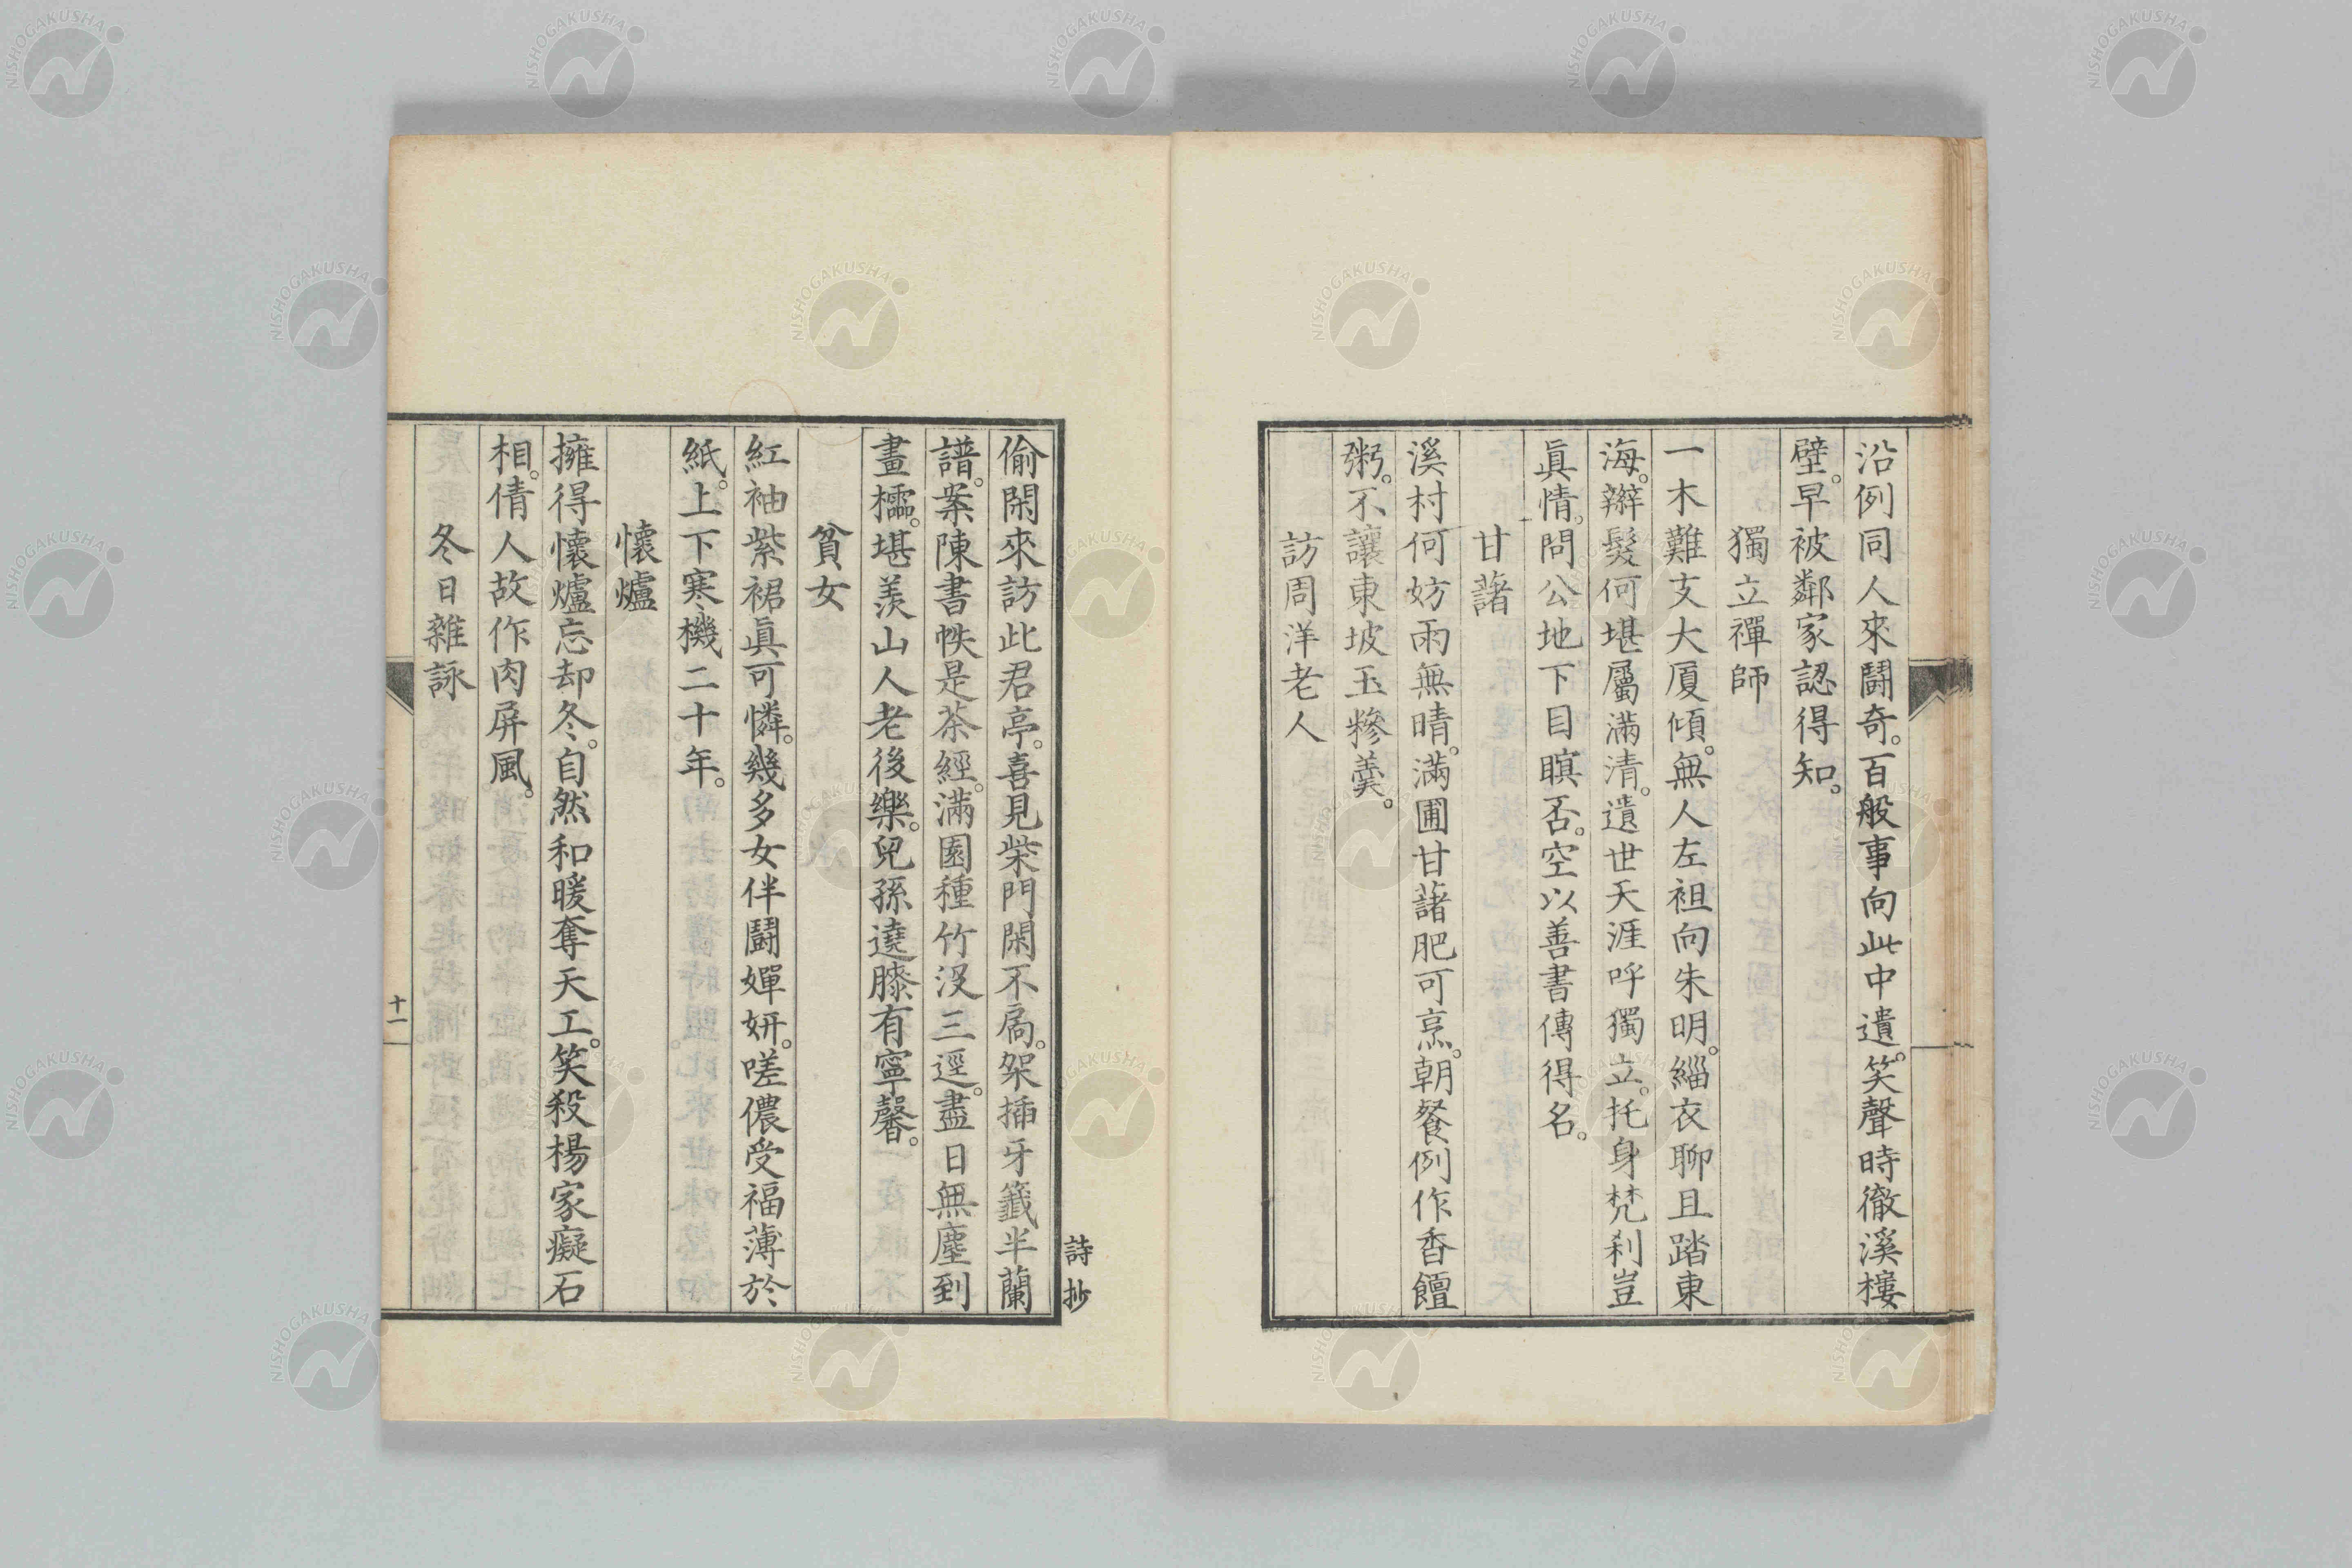 沿例同人來鬪奇。百般事向此中遺。笑聲時徹溪樓
壁。早被鄰家認得知。
獨立禪師
一木難支大厦傾。無人左袒向朱明。緇衣聊且踏東
海。辮髮何堪屬滿清。遺世天涯呼獨立。托身梵刹豈
眞情。問公地下目瞑否。空以善書傳得名。
甘藷
溪村何妨雨無晴。滿圃甘藷肥可烹。朝餐例作香饘
粥。不讓東坡玉糝羹。
訪周洋老人
詩抄
偷閑來訪此君亭。喜見柴門閑不扃。架插牙籤半蘭
譜。案陳書帙是茶經。滿園種竹沒三逕。盡日無塵到
畫櫺。堪羨山人老後樂。兒孫遶膝有寧馨。
貧女
紅袖紫裙眞可憐。幾多女伴鬪嬋妍。嗟儂受福薄於
紙。上下寒機二十年。
懷爐
擁得懷爐忘却冬。自然和暖奪天工。笑殺楊家癡石
相。倩人故作肉屏風。
冬日雜詠
十一
NISHOGAKUSHA